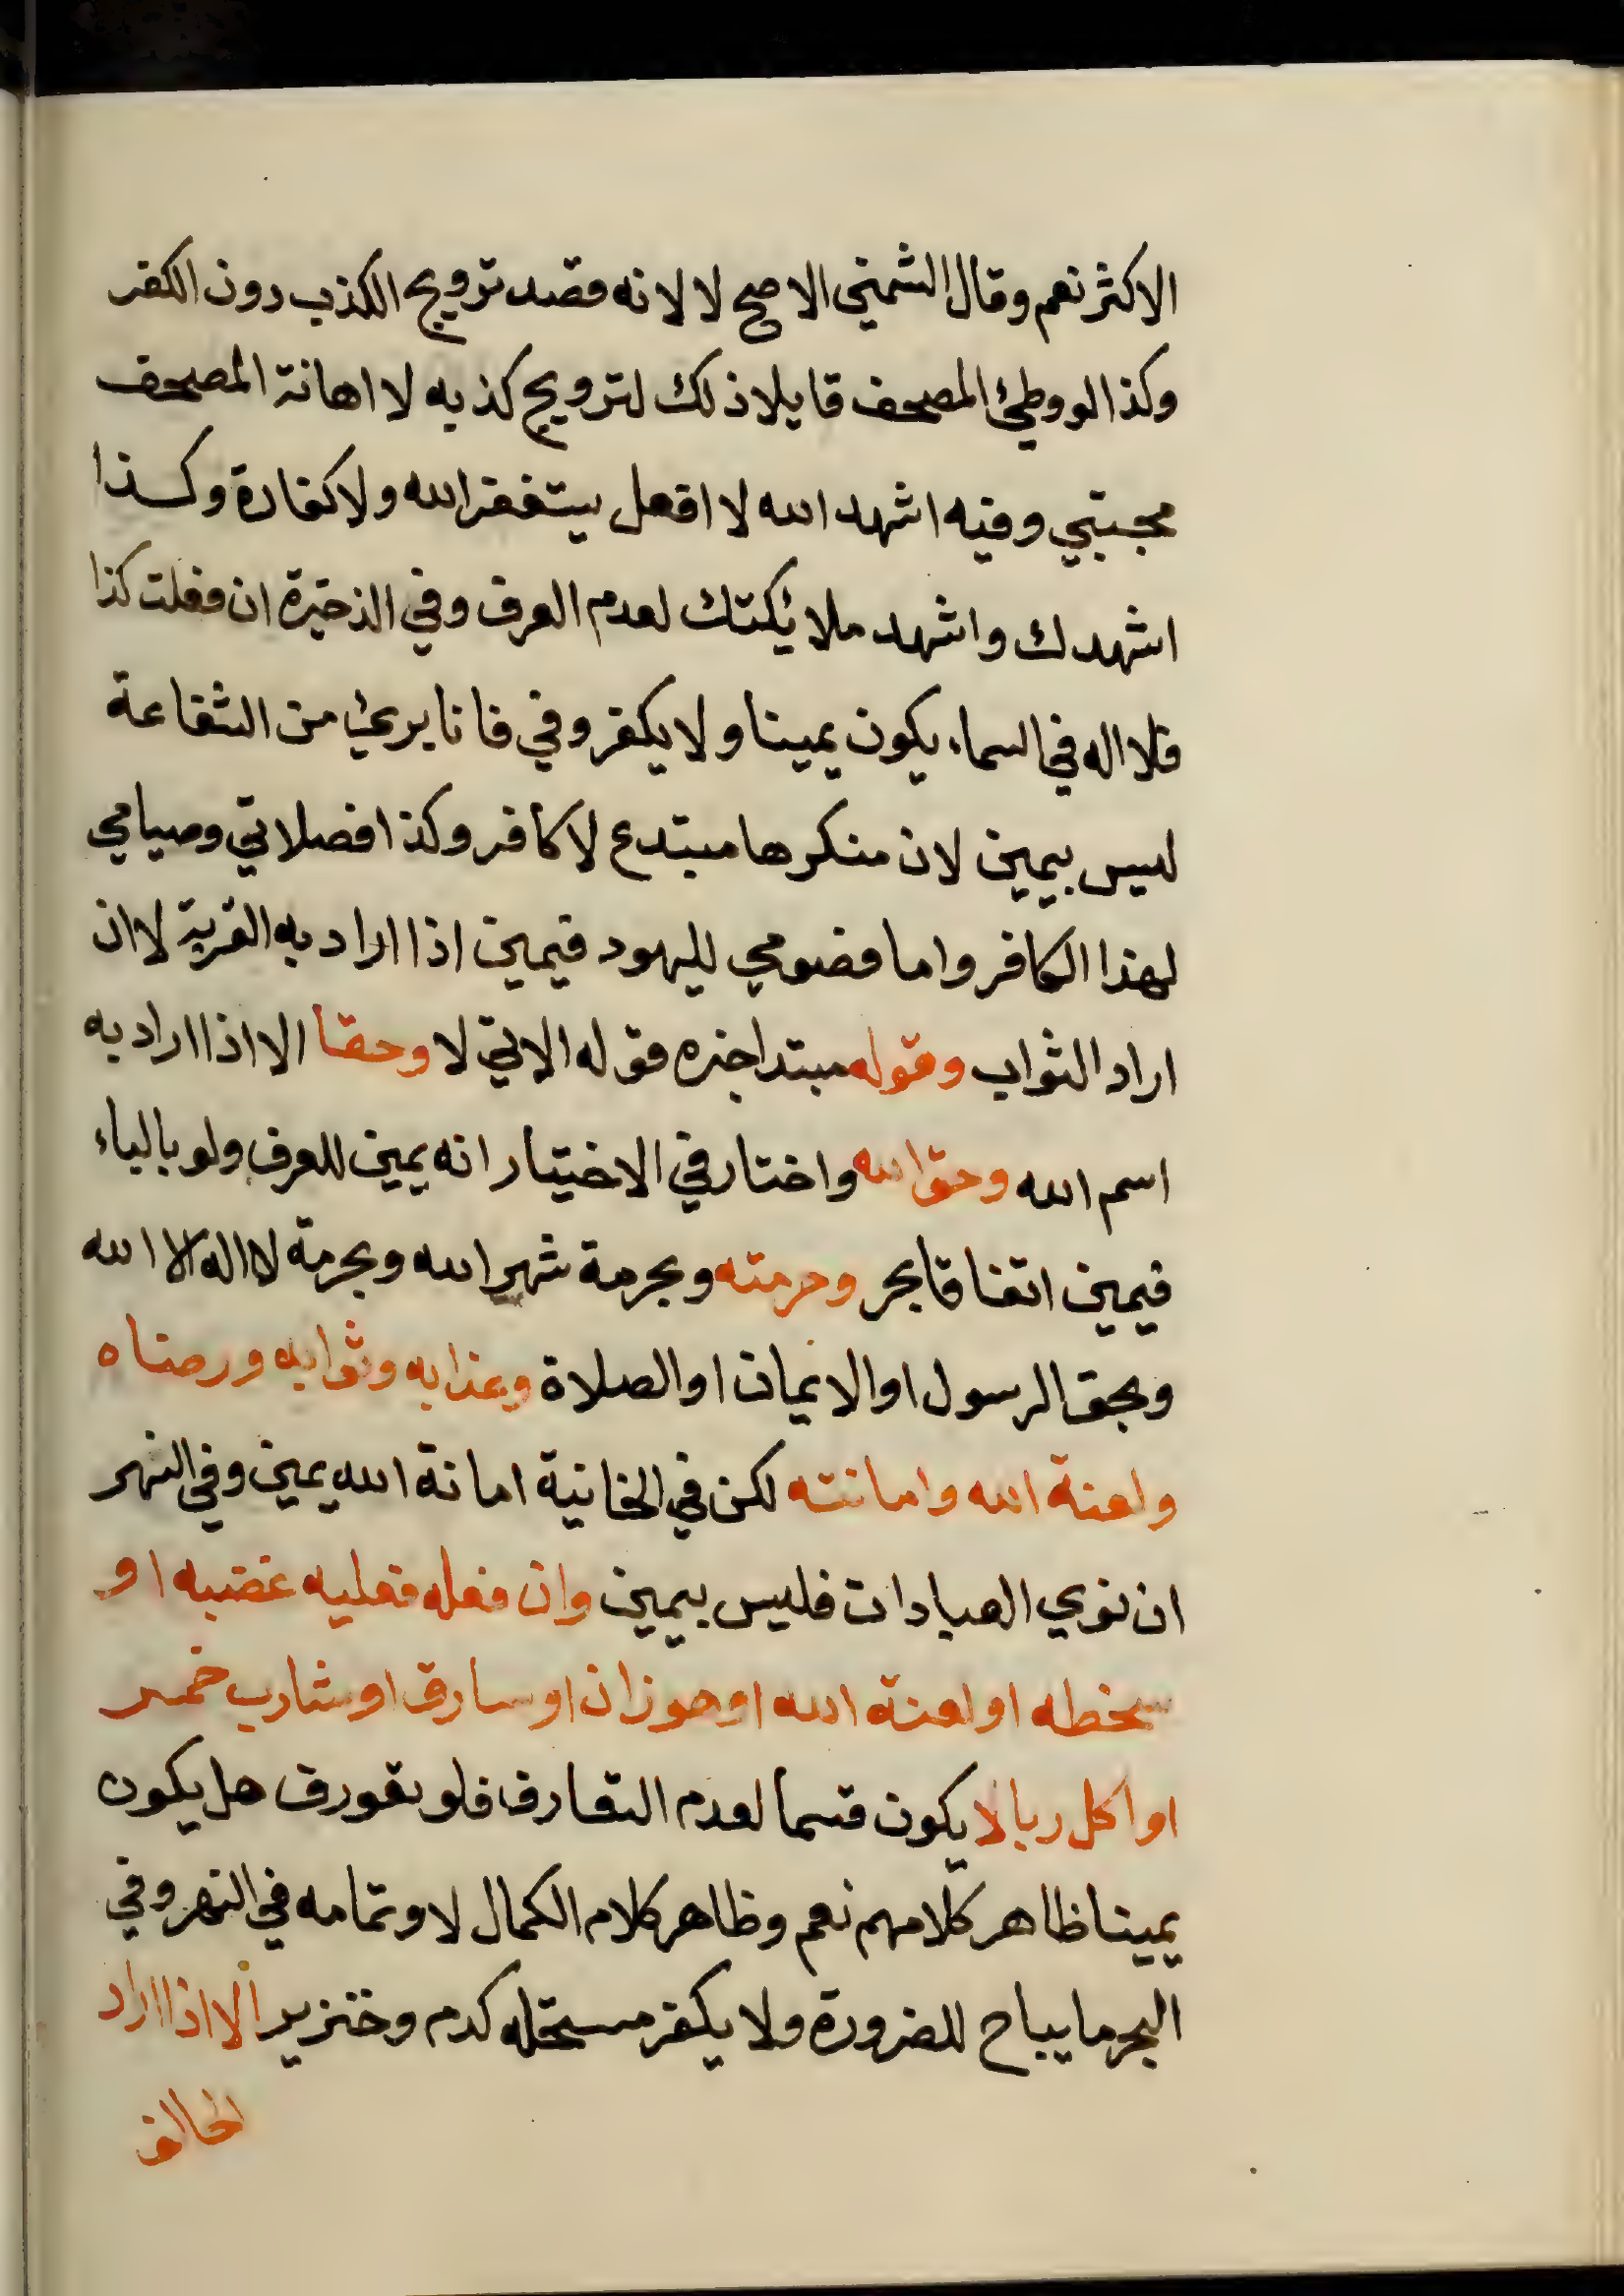 الاكثر نعم وقال الشمني الاصح لا لانه قصد ترويج الكذب دون الكفر
وكذا لو وطئ المصحف قايلا ذلك لترويج كذبه لا اهانة المصحف
مجتبي وفيه اشهد الله لا افعل يستغفر الله ولا كفارة وكذا
اشهدك واشهد ملائكتك لعدم العرف وفي الذخيرة ان فعلت كذا
فلا اله في السماء يكون يمينا ولا يكفر وفي فانا بريئ من الشفاعة
ليس بيمين لان منكرها مبتدع لا كافر وكذا فصلاتي وصيامي
لهذا الكافر واما فصومي لليهود فيمين اذا اراد به القربة لا ان
اراد الثواب وقوله مبتدا خبره قوله الاتي لا وحقا الا اذا اراد به
اسم الله وحق الله واختار في الاختيار انه يمين للعرف ولو بالباء
فيمين اتفاقا بحر وحرمته وبحرمة شهد الله وبحرمة لا اله الا الله
وبحق الرسول او الايمان او الصلاة وعذابه وثوابه ورضاه
ولعنة الله وامانته لكن في الخانية امانة الله يمين وفي النهر
ان نوي العبادات فليس بيمين وان فعله فعليه غضبه او
سخطه او لعنة الله او هو زان او سارق او شارب خمر
او اكل ربا لا يكون قسما لعدم التعارف فلو تعورف هل يكون
يمينا ظاهر كلامهم نعم وظاهر كلام الكمال لا وتمامه في النهر وفي
البحر ما يباح للضرورة ولا يكفر مستحله كدم وخنزير الا اذا اراد
الحالف